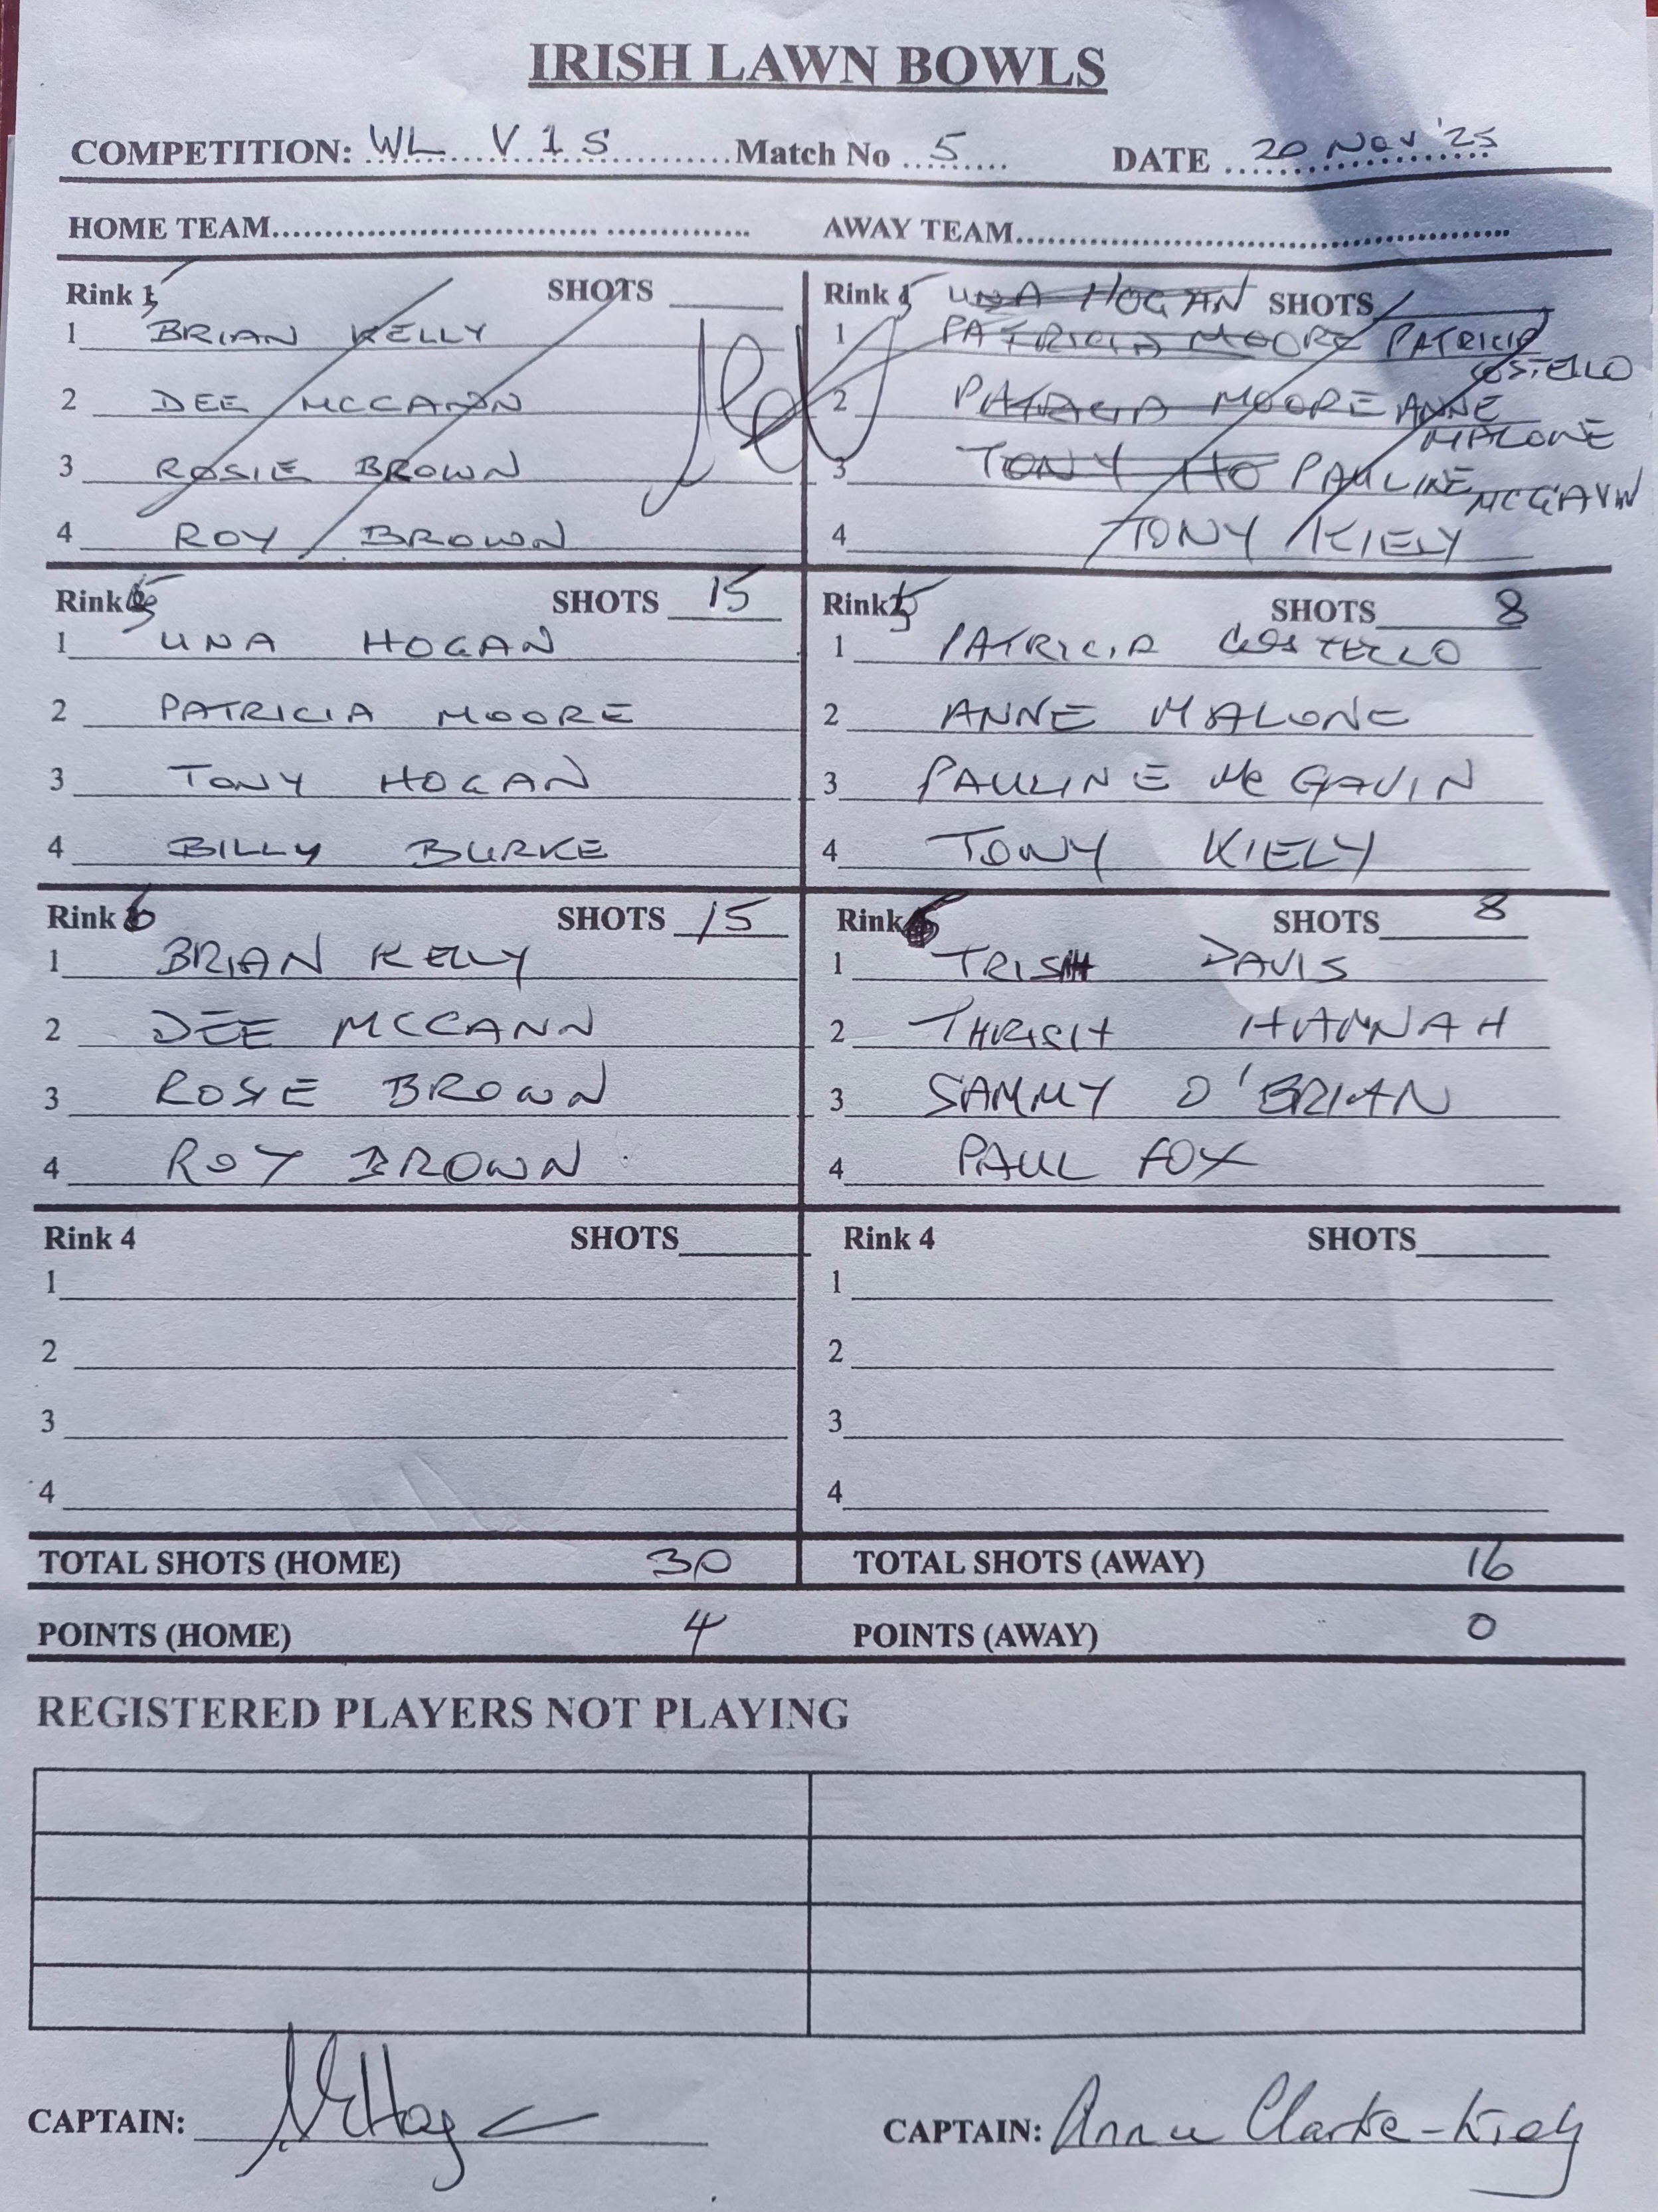 IRISH LAWN BOWLS
COMPETITION: WL V 1 S Match No 5 DATE 20 NOV '25
HOME TEAM AWAY TEAM
Rink 5 SHOTS
1 BRIAN KELLY
2 DEE MCCANN
3 ROSIE BROWN
4 ROY BROWN
Rink 5 UNA HOGAN SHOTS
1 PATRICIA MOORE PATRICIA COSTELLO
2 PATRICIA MOORE ANNE MALONE
3 TONY HO PAULINE MCGAVIN
4 TONY KIELY
Rink 5 SHOTS 15
1 UNA HOGAN
2 PATRICIA MOORE
3 TONY HOGAN
4 BILLY BURKE
Rink 5 SHOTS 8
1 PATRICIA COSTELLO
2 ANNE MALONE
3 PAULINE Mc GAVIN
4 TONY KIELY
Rink 6 SHOTS 15
1 BRIAN KELLY
2 DEE MCCANN
3 ROSIE BROWN
4 ROY BROWN
Rink 6 SHOTS 8
1 TRISH DAVIS
2 HANNAH
3 SAMMY O'BRIAN
4 PAUL FOX
Rink 4 SHOTS
1
2
3
4
Rink 4 SHOTS
1
2
3
4
TOTAL SHOTS (HOME) 30 TOTAL SHOTS (AWAY) 16
POINTS (HOME) 4 POINTS (AWAY) 0
REGISTERED PLAYERS NOT PLAYING
CAPTAIN: CAPTAIN: Anne Clarke-Kiely